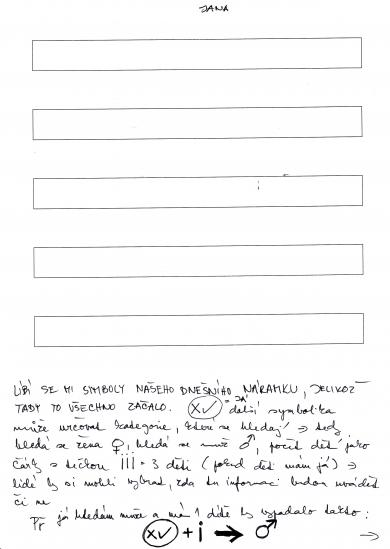 JANA
LÍBÍ SE MI SYMBOLY NAŠEHO DNEŠNÍHO NÁRAMKU, JELIKOŽ
TADY TO VŠECHNO ZAČALO. XV = JÁ další symbolika
může určovat kategorie, které se hledají → tedy
hledá se žena ♀, hledá se muž ♂, počet dětí jako
čárky s tečkou iii = 3 děti (pokud děti mám já) →
lidé by si mohli vybrat, zda tu informaci budou uvádět
či ne
Př já hledám muže a mám 1 dítě by vypadalo takto:
XV + i → ♂